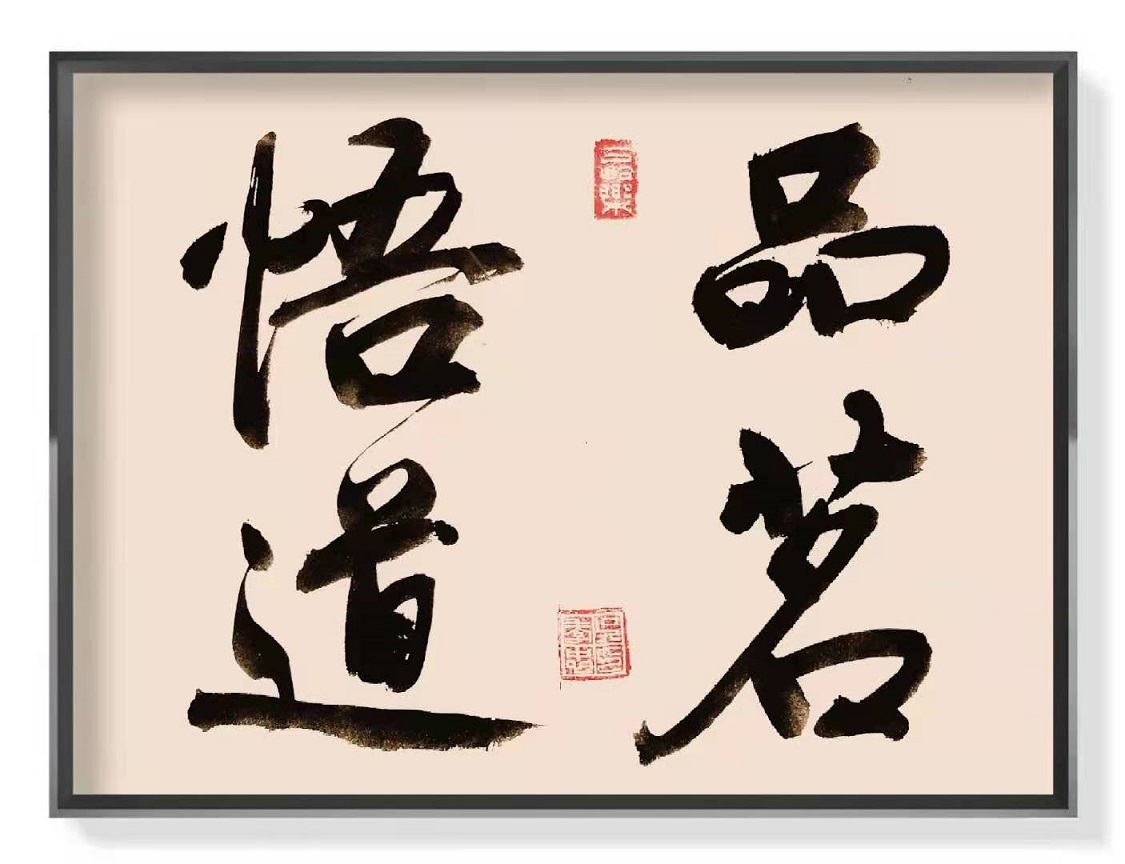 品茗
悟道